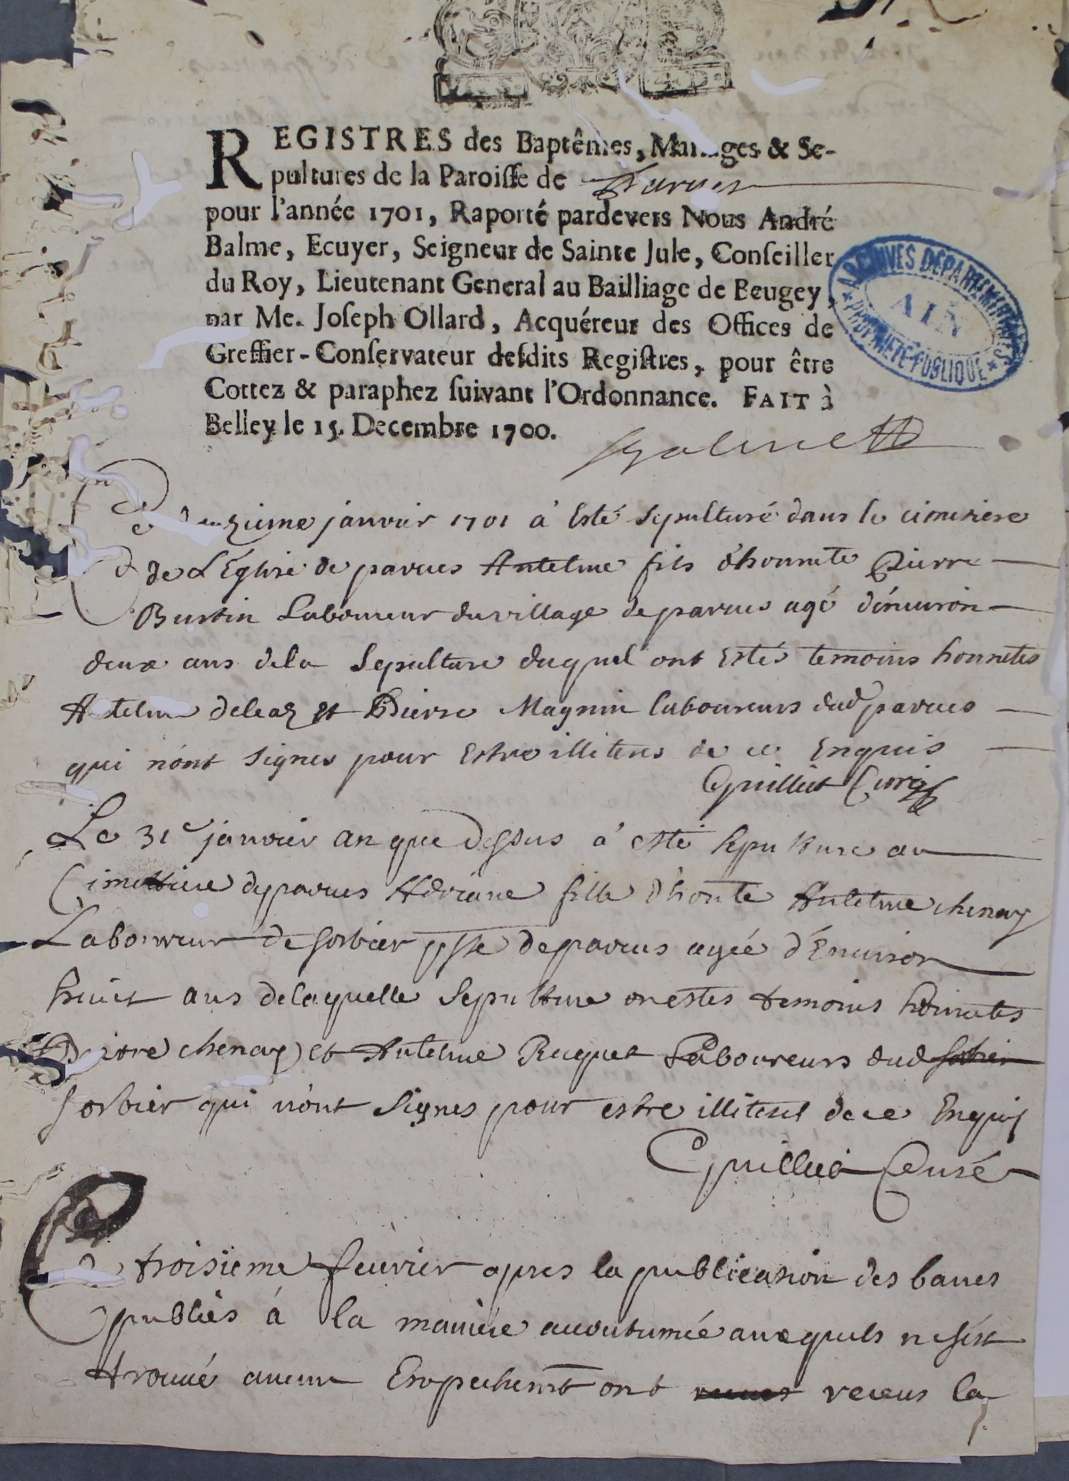 REGISTRES des Baptêmes, Mariages & Se-
pultures de la Paroisse de Parves
pour l'année 1701, Raporté pardevers Nous André
Balme, Ecuyer, Seigneur de Sainte Jule, Conseiller
du Roy, Lieutenant General au Bailliage de Beugey,
par Me. Joseph Ollard, Acquéreur des Offices de
Greffier-Conservateur desdits Registres, pour être
Cottez & paraphez suivant l'Ordonnance. FAIT à
Belley le 15. Decembre 1700.
Balme
ARCHIVES DEPARTEMENTALES
AIN
* PROPRIÉTÉ PUBLIQUE *
janvier 1701 à Esté sepulturé dans le cimetiere
de L'Eglise de parves Antelme fils d'honnete Pierre
Burtin Laboureur du village de parves agé d'énviron
deux ans dela Sepulture duquel ont Estés temoins honnetes
Antelme deleaz et Pierre Magnin laboureurs dud parves
qui n'ont signes pour Estre illiteres de ce Enquis
Guilliet Curé
Le 31e janvier an que dessus à esté sepulture au
Cimettiere de parves Adriane fille d'honte Antelme chenay
Laboureur de sorbier psse de parves agée d'Environ
huict ans delaquelle Sepulture on estes temoins honnetes
Pierre chenay et Antelme Ruquet Laboureurs dud sorbier
sorbier qui n'ont signes pour estre illiteres de ce Enquis
Guilliet Curé
Le troisieme feuvrier apres la publication des bancs
publiés à la maniere accoutumée auxquels ne s'est
trouvé aucun Empechemt ont receus receus la